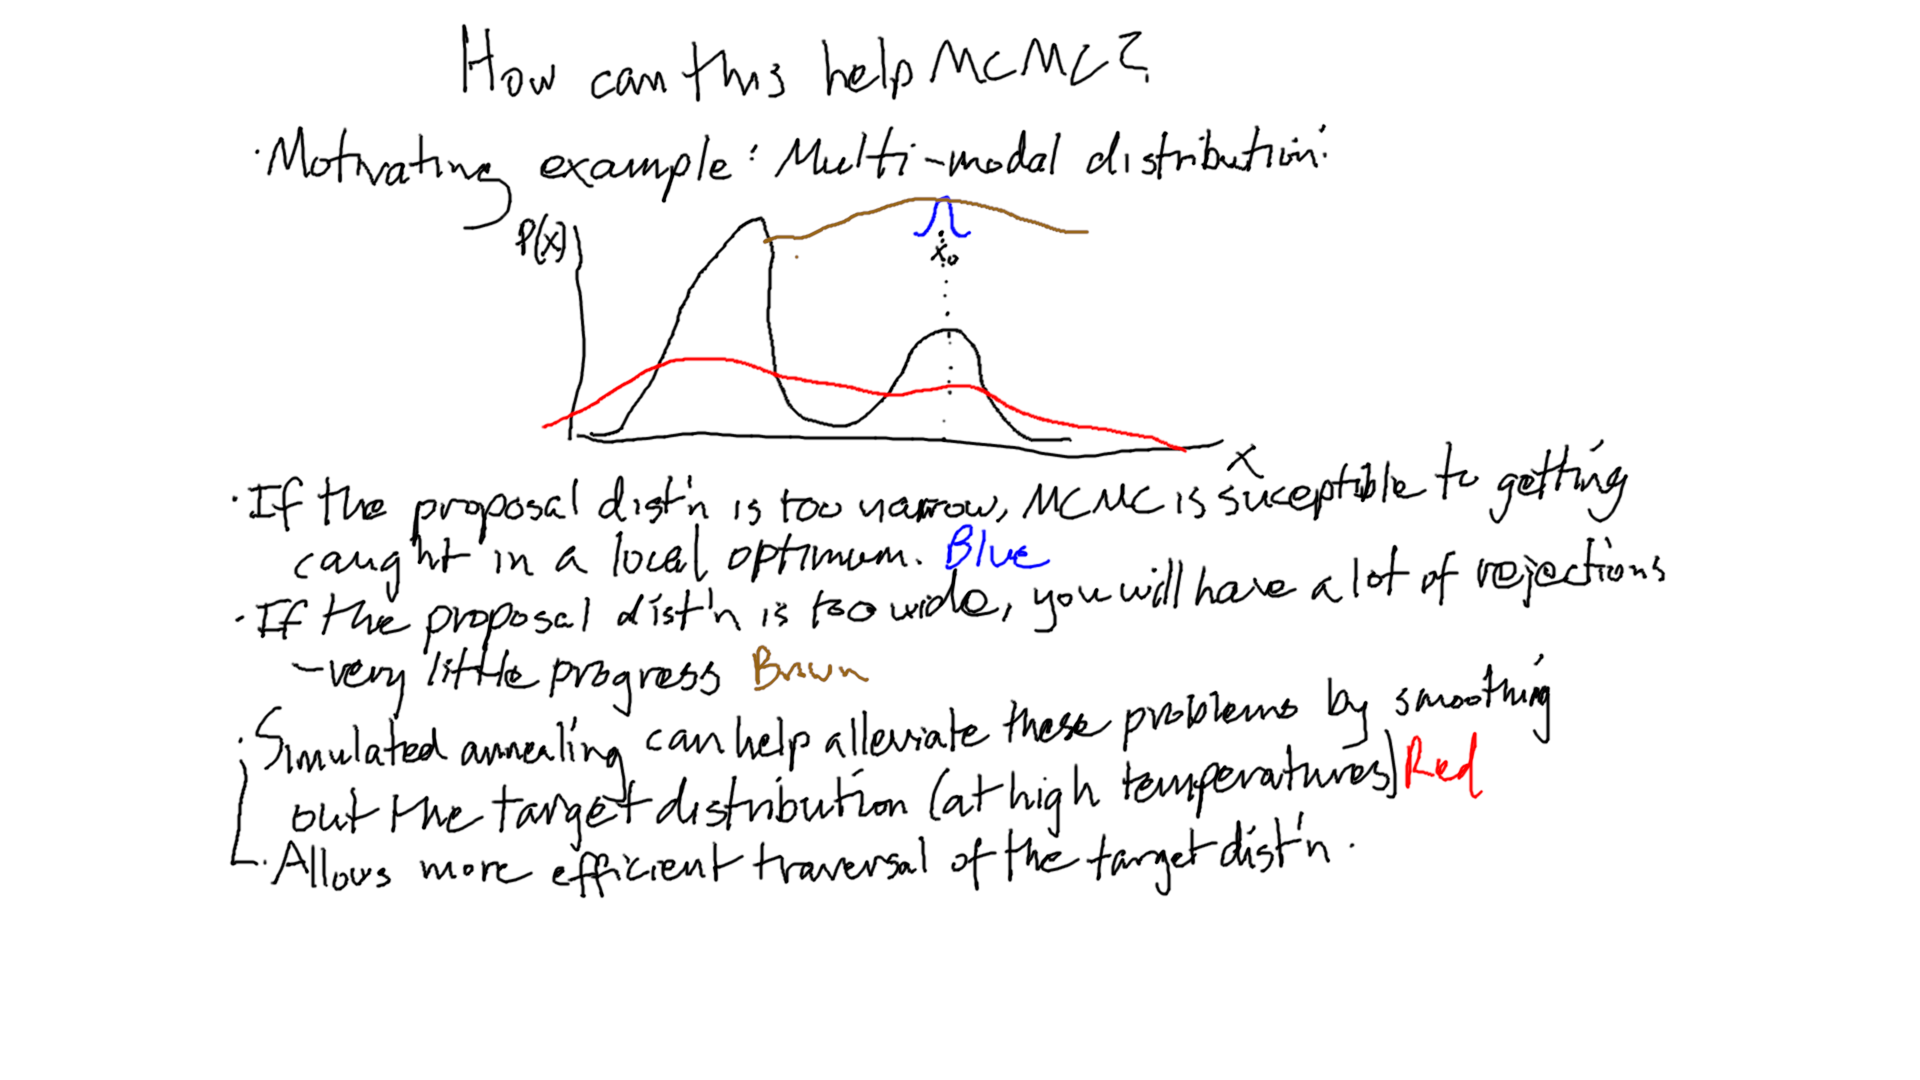 How can this help MCMC?
· Motivating example: Multi-modal distribution:
P(x)
x₀
x
· If the proposal dist'n is too narrow, MCMC is suceptible to getting
caught in a local optimum. Blue
· If the proposal dist'n is too wide, you will have a lot of rejections
- very little progress Brown
· Simulated annealing can help alleviate these problems by smoothing
out the target distribution (at high temperatures) Red
· Allows more efficient traversal of the target dist'n.